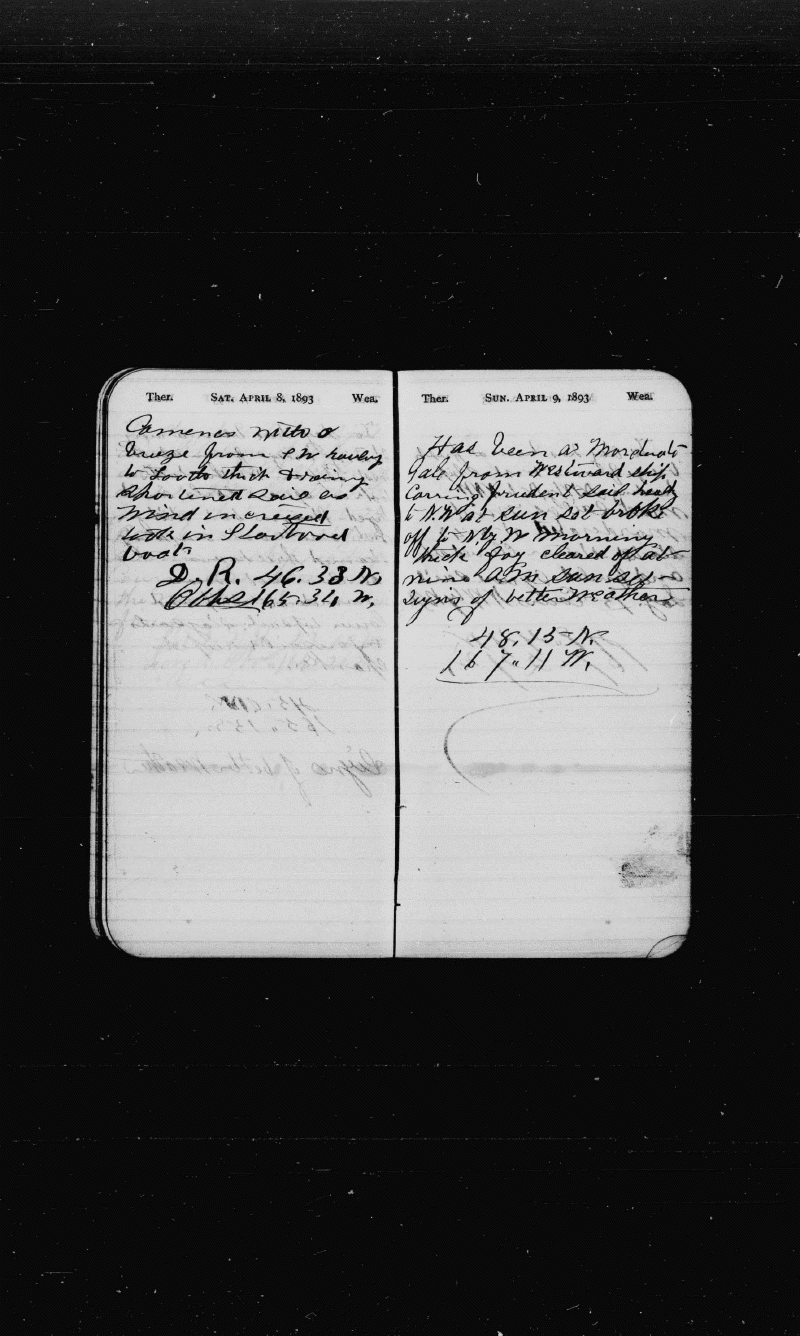 Ther. SAT. APRIL 8, 1893 Wea.
Comences with a
breeze from S W
to South thick & rainy
Shortened Sail as
Wind increased
took in Starbord
boat
D. R. 46. 33 N
165. 34 W.
Ther. SUN. APRIL 9, 1893 Wea.
Has been a Mordnate
Gale from Westward ship
Carring prudent Sail heady
to N.W at Sun Set broke
off to N by W Morning
thick foy cleared of at
nine A M Sun Set
Signs of better Weather
48. 15 N.
167. 11 W.